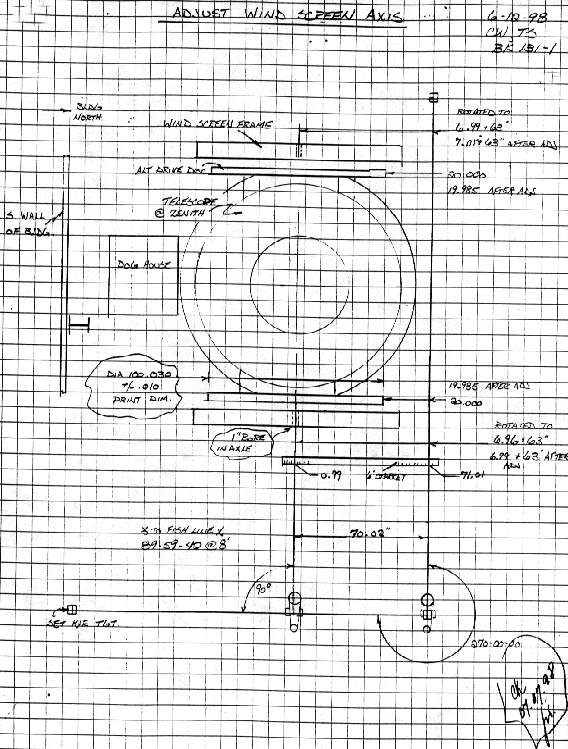 ADJUST WIND SCREEN AXIS
6-12-98
CW TS
BK 131-1
BLDG
NORTH
WIND SCREEN FRAME
ROTATED TO
6.99 + 63"
7.01 + 63" AFTER ADJ
ALT DRIVE DISC
20.000
19.985 AFTER ADJ
TELESCOPE
@ ZENITH
S WALL
OF BLDG
DOG HOUSE
DIA 100.030
+/- .010
PRINT DIM.
19.985 AFTER ADJ
20.000
1" BORE
IN AXLE
ROTATED TO
6.96 + 63"
6.99 + 63" AFTER
ADJ
0.99
71.01
FISH LINE
89-59-42 @ 8'
70.02"
90°
SET K&E TGT.
270-00-00